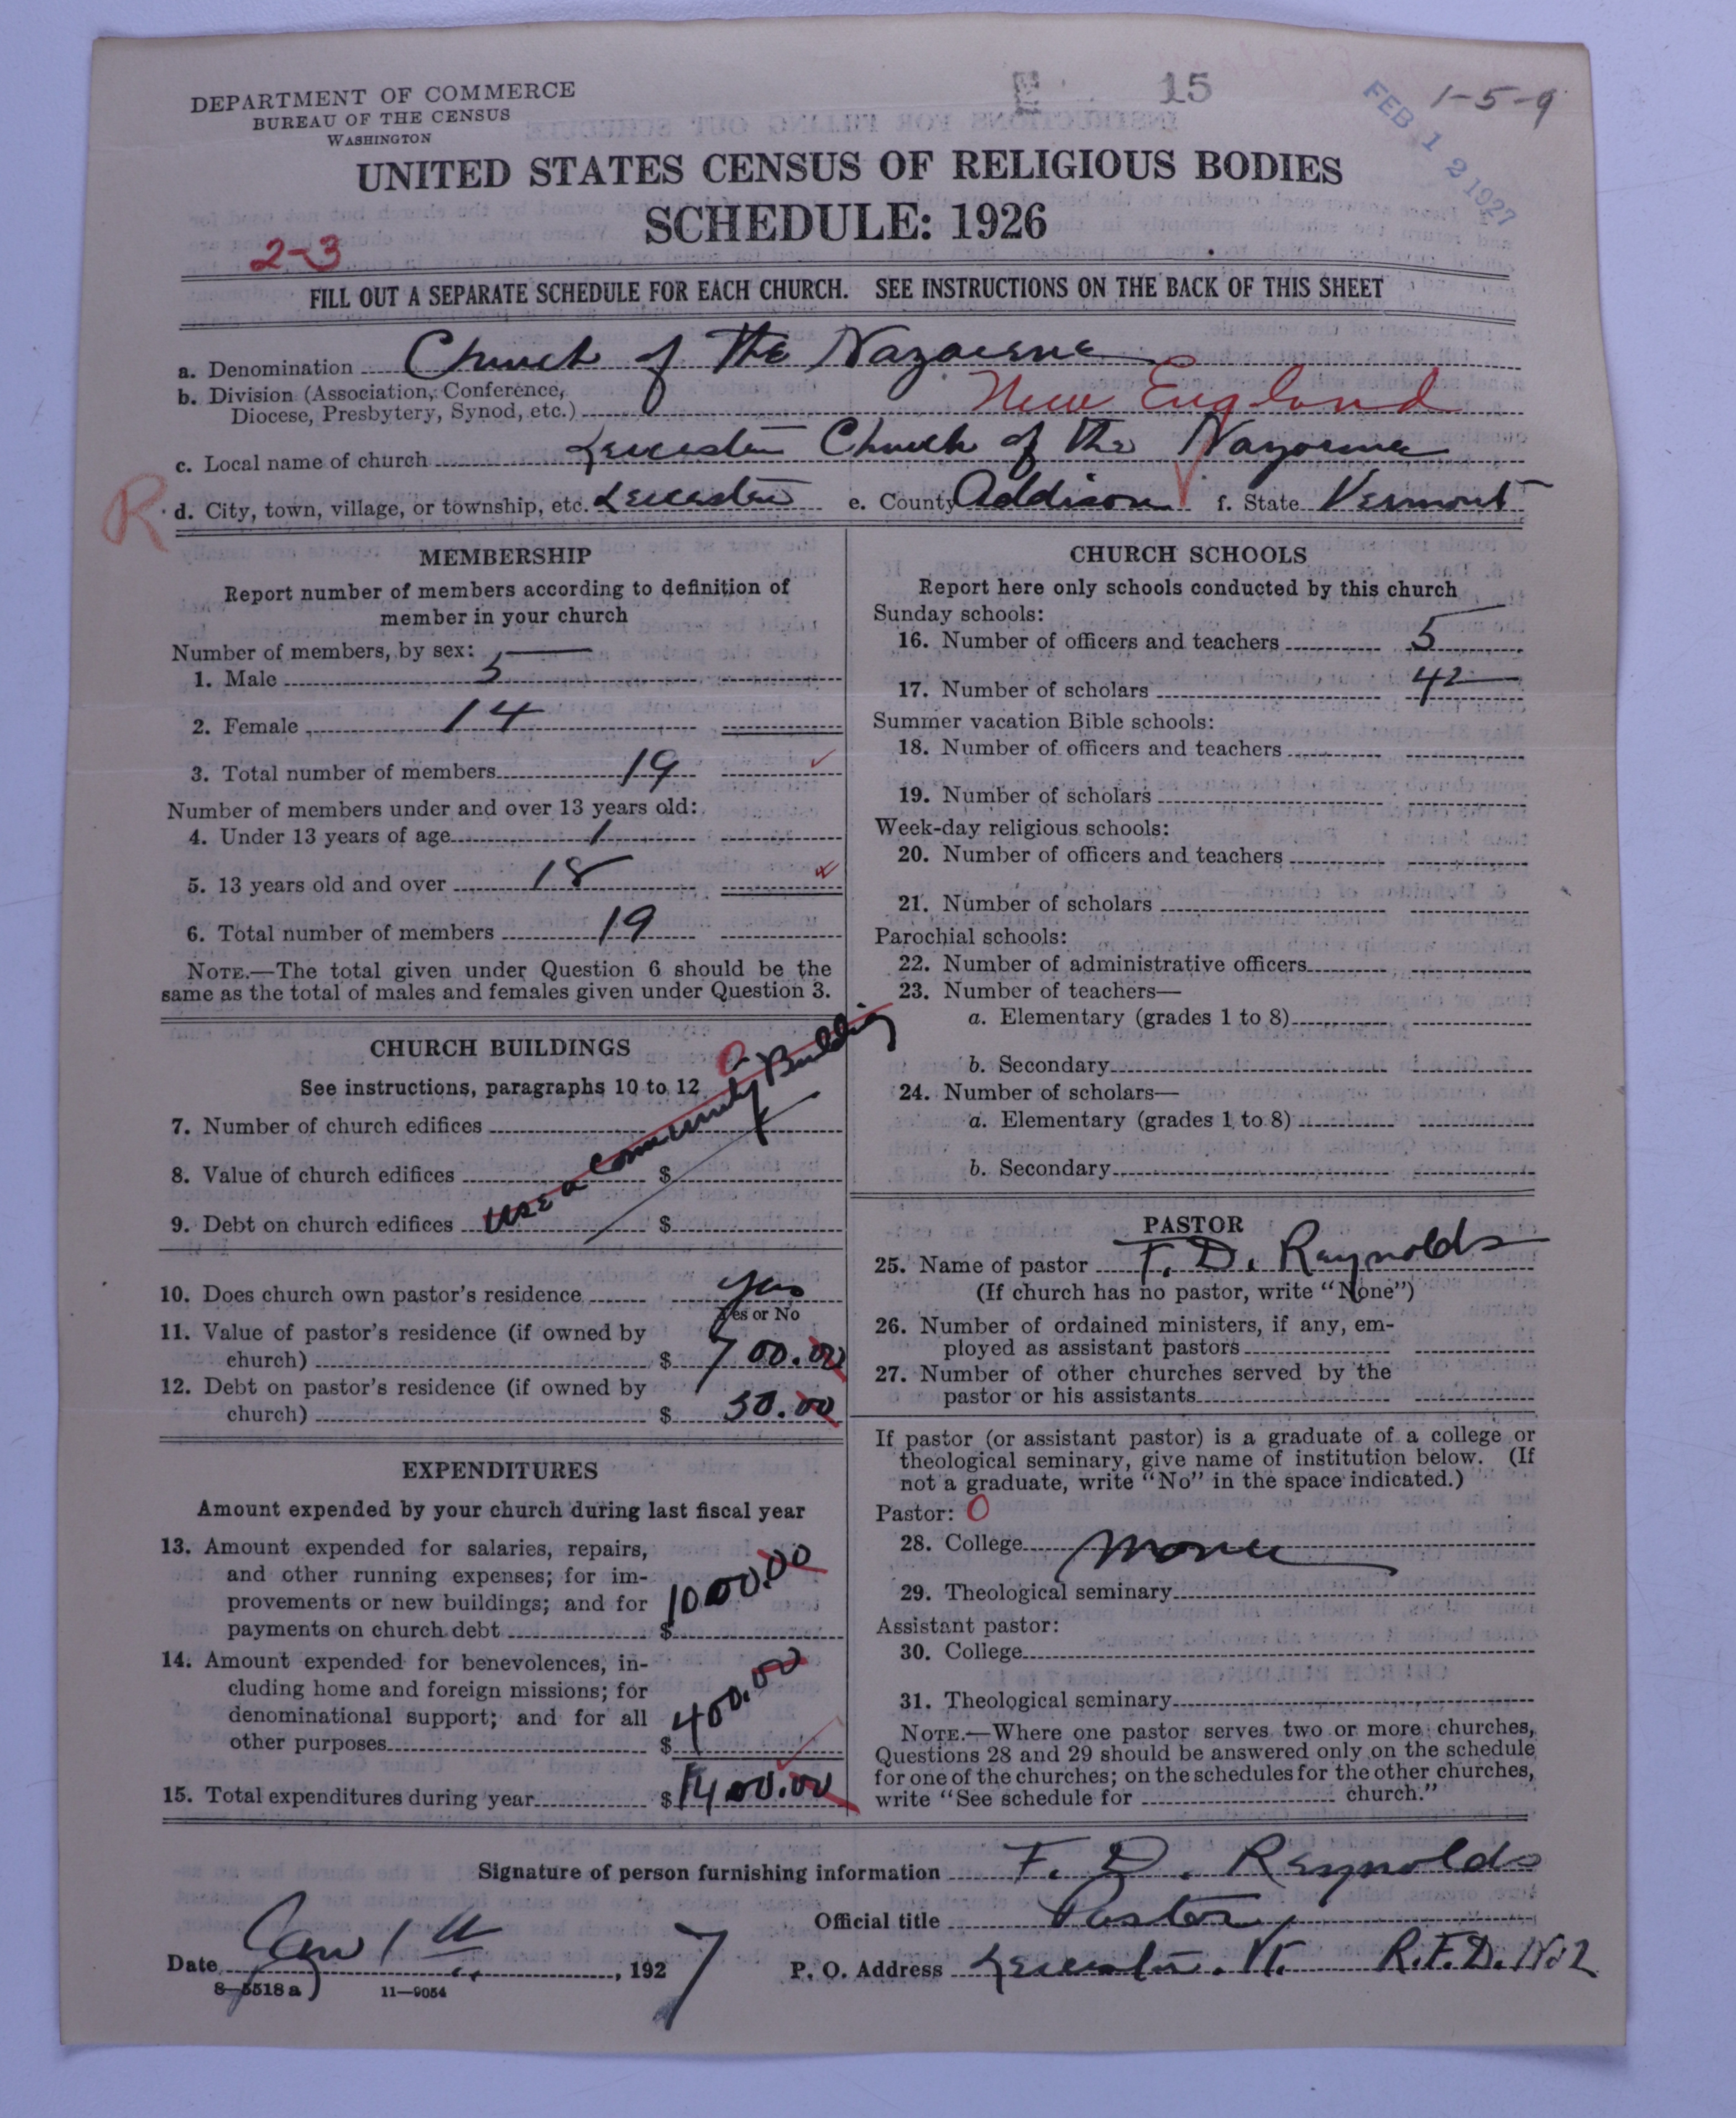 DEPARTMENT OF COMMERCE
BUREAU OF THE CENSUS
WASHINGTON
15
1-5-9
FEB 12 1927
UNITED STATES CENSUS OF RELIGIOUS BODIES
SCHEDULE: 1926
2-3
FILL OUT A SEPARATE SCHEDULE FOR EACH CHURCH. SEE INSTRUCTIONS ON THE BACK OF THIS SHEET
a. Denomination Church of The Nazarene
b. Division (Association, Conference,
Diocese, Presbytery, Synod, etc.) New England
c. Local name of church Leicester Church of the Nazarene
R
d. City, town, village, or township, etc. Leicester e. County Addison f. State Vermont
MEMBERSHIP
Report number of members according to definition of
member in your church
Number of members, by sex:
1. Male 5
2. Female 14
3. Total number of members 19
Number of members under and over 13 years old:
4. Under 13 years of age 1
5. 13 years old and over 18
6. Total number of members 19
NOTE.—The total given under Question 6 should be the
same as the total of males and females given under Question 3.
CHURCH BUILDINGS
See instructions, paragraphs 10 to 12 0
7. Number of church edifices
8. Value of church edifices $
9. Debt on church edifices $
use a Community Building
10. Does church own pastor's residence yes
Yes or No
11. Value of pastor's residence (if owned by
church) $ 700.00
12. Debt on pastor's residence (if owned by
church) $ 50.00
EXPENDITURES
Amount expended by your church during last fiscal year
13. Amount expended for salaries, repairs,
and other running expenses; for im-
provements or new buildings; and for
payments on church debt $ 1000.00
14. Amount expended for benevolences, in-
cluding home and foreign missions; for
denominational support; and for all
other purposes $ 400.00
15. Total expenditures during year $ 1400.00
CHURCH SCHOOLS
Report here only schools conducted by this church
Sunday schools:
16. Number of officers and teachers 5
17. Number of scholars 42
Summer vacation Bible schools:
18. Number of officers and teachers
19. Number of scholars
Week-day religious schools:
20. Number of officers and teachers
21. Number of scholars
Parochial schools:
22. Number of administrative officers
23. Number of teachers—
a. Elementary (grades 1 to 8)
b. Secondary
24. Number of scholars—
a. Elementary (grades 1 to 8)
b. Secondary
PASTOR
25. Name of pastor F. D. Reynolds
(If church has no pastor, write "None")
26. Number of ordained ministers, if any, em-
ployed as assistant pastors
27. Number of other churches served by the
pastor or his assistants
If pastor (or assistant pastor) is a graduate of a college or
theological seminary, give name of institution below. (If
not a graduate, write "No" in the space indicated.)
Pastor: 0
28. College None
29. Theological seminary
Assistant pastor:
30. College
31. Theological seminary
NOTE.—Where one pastor serves two or more churches,
Questions 28 and 29 should be answered only on the schedule
for one of the churches; on the schedules for the other churches,
write "See schedule for church."
Signature of person furnishing information F. D. Reynolds
Official title Pastor
Date Jan 11, 1927
P. O. Address Leicester. Vt. R.F.D. No 2
8-5518 a 11-9054